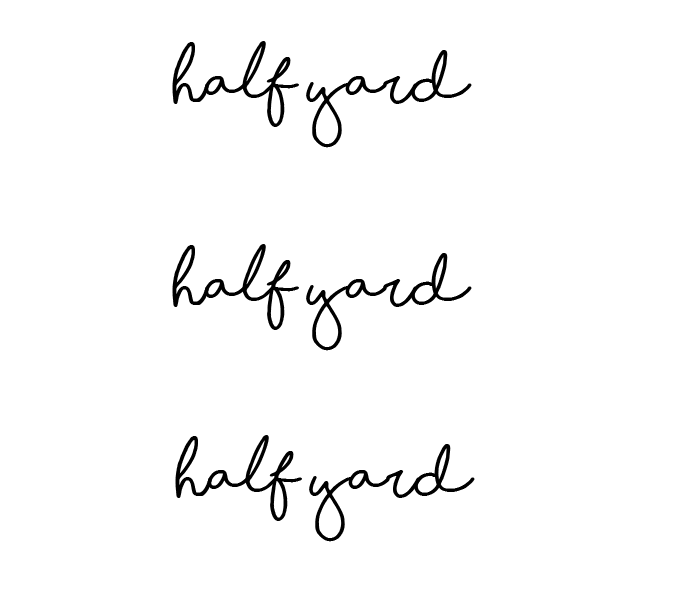 half yard
half yard
half yard